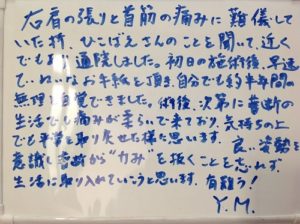 右肩の張りと首筋の痛みに難儀して
いた折、ひこばえさんのことを聞いて、近く
でもあり通院しました。初日の施術後、早速
ていねいなお手紙を頂き、自分でも約半年間の
無理を自覚できました。術後、次第に普断の
生活でも痛みが柔らいで来ており、気持ちの上
でも余裕を取り戻せた様に思います。良い姿勢を
意識し普断から“力み”を抜くことを忘れず、
生活に取り入れていこうと思います。有難う!
Y.M.